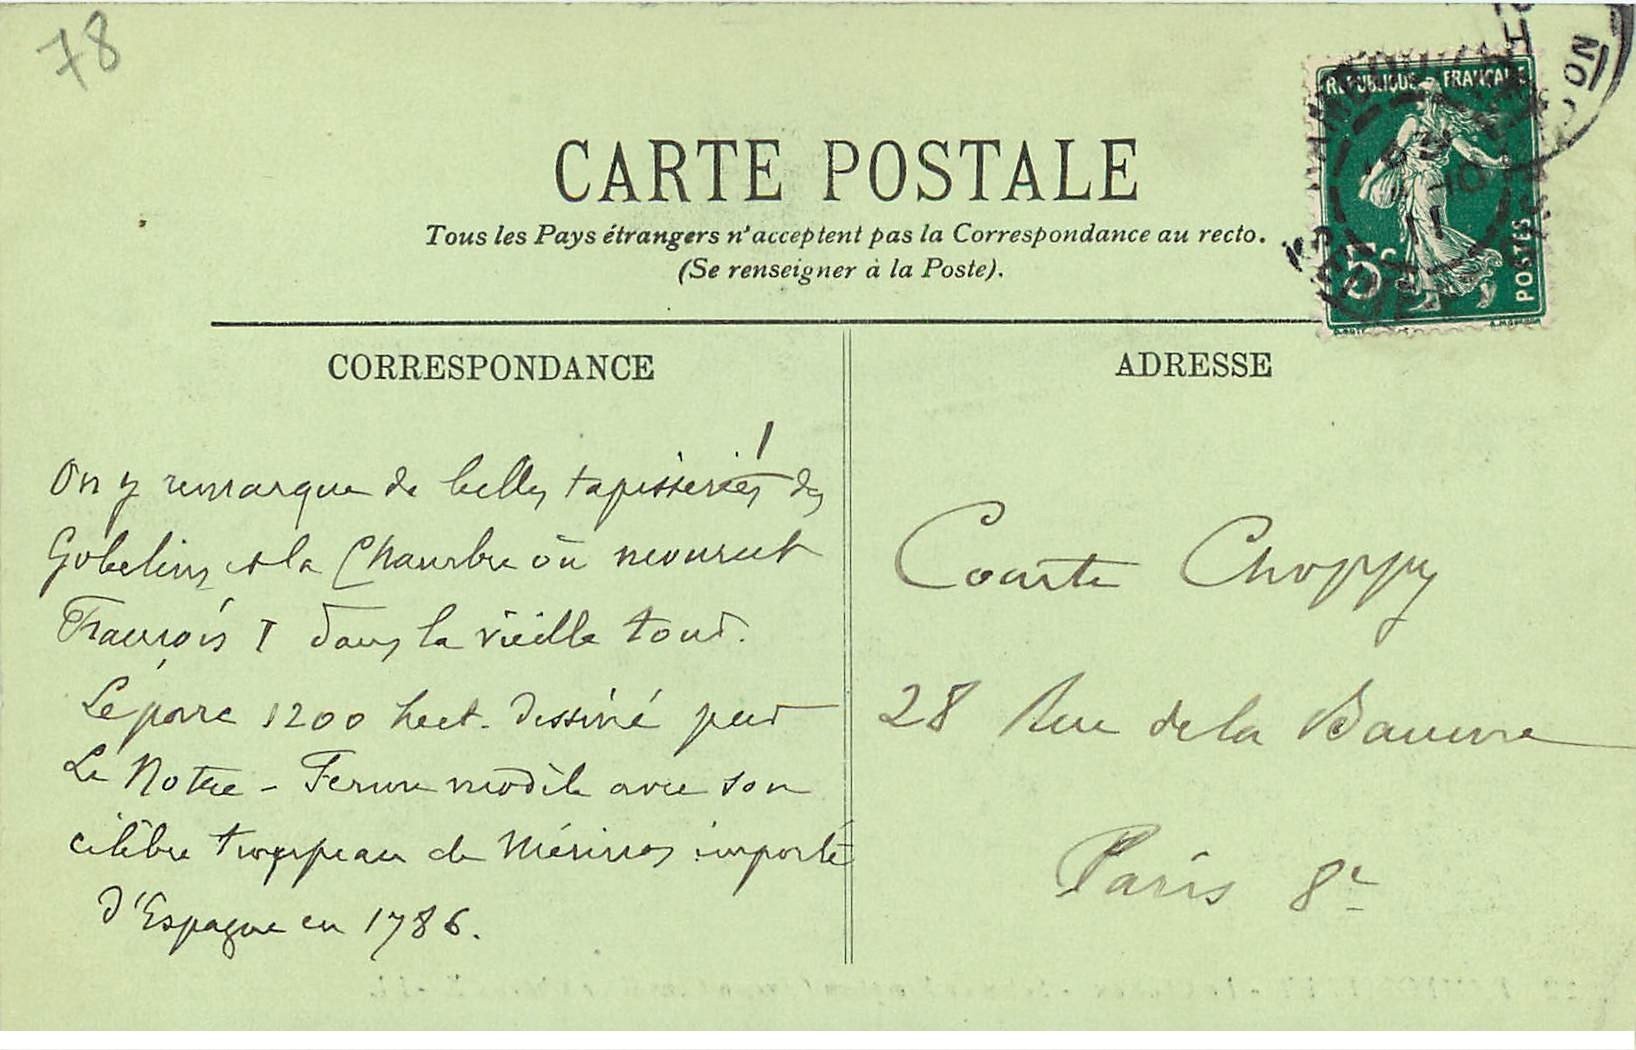 78
REPUBLIQUE FRANÇAISE
5c
POSTES
CARTE POSTALE
Tous les Pays étrangers n'acceptent pas la Correspondance au recto.
(Se renseigner à la Poste).
CORRESPONDANCE
On y remarque de belles tapisseries des
Gobelins et la Chambre où mourut
François I dans la vieille tour.
Le parc 1200 hect. dessiné par
Le Notre - Ferme modèle avec son
célèbre troupeau de Mérinos importé
d'Espagne en 1786.
ADRESSE
Comte Choppy
28 Rue de la Baume
Paris 8e